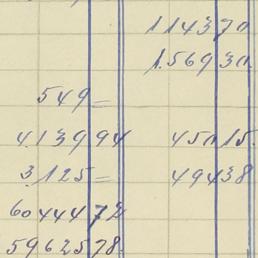 114370
1.56930.
549=
4.13994 45015.
3.125= 49438
6044472
5962578.